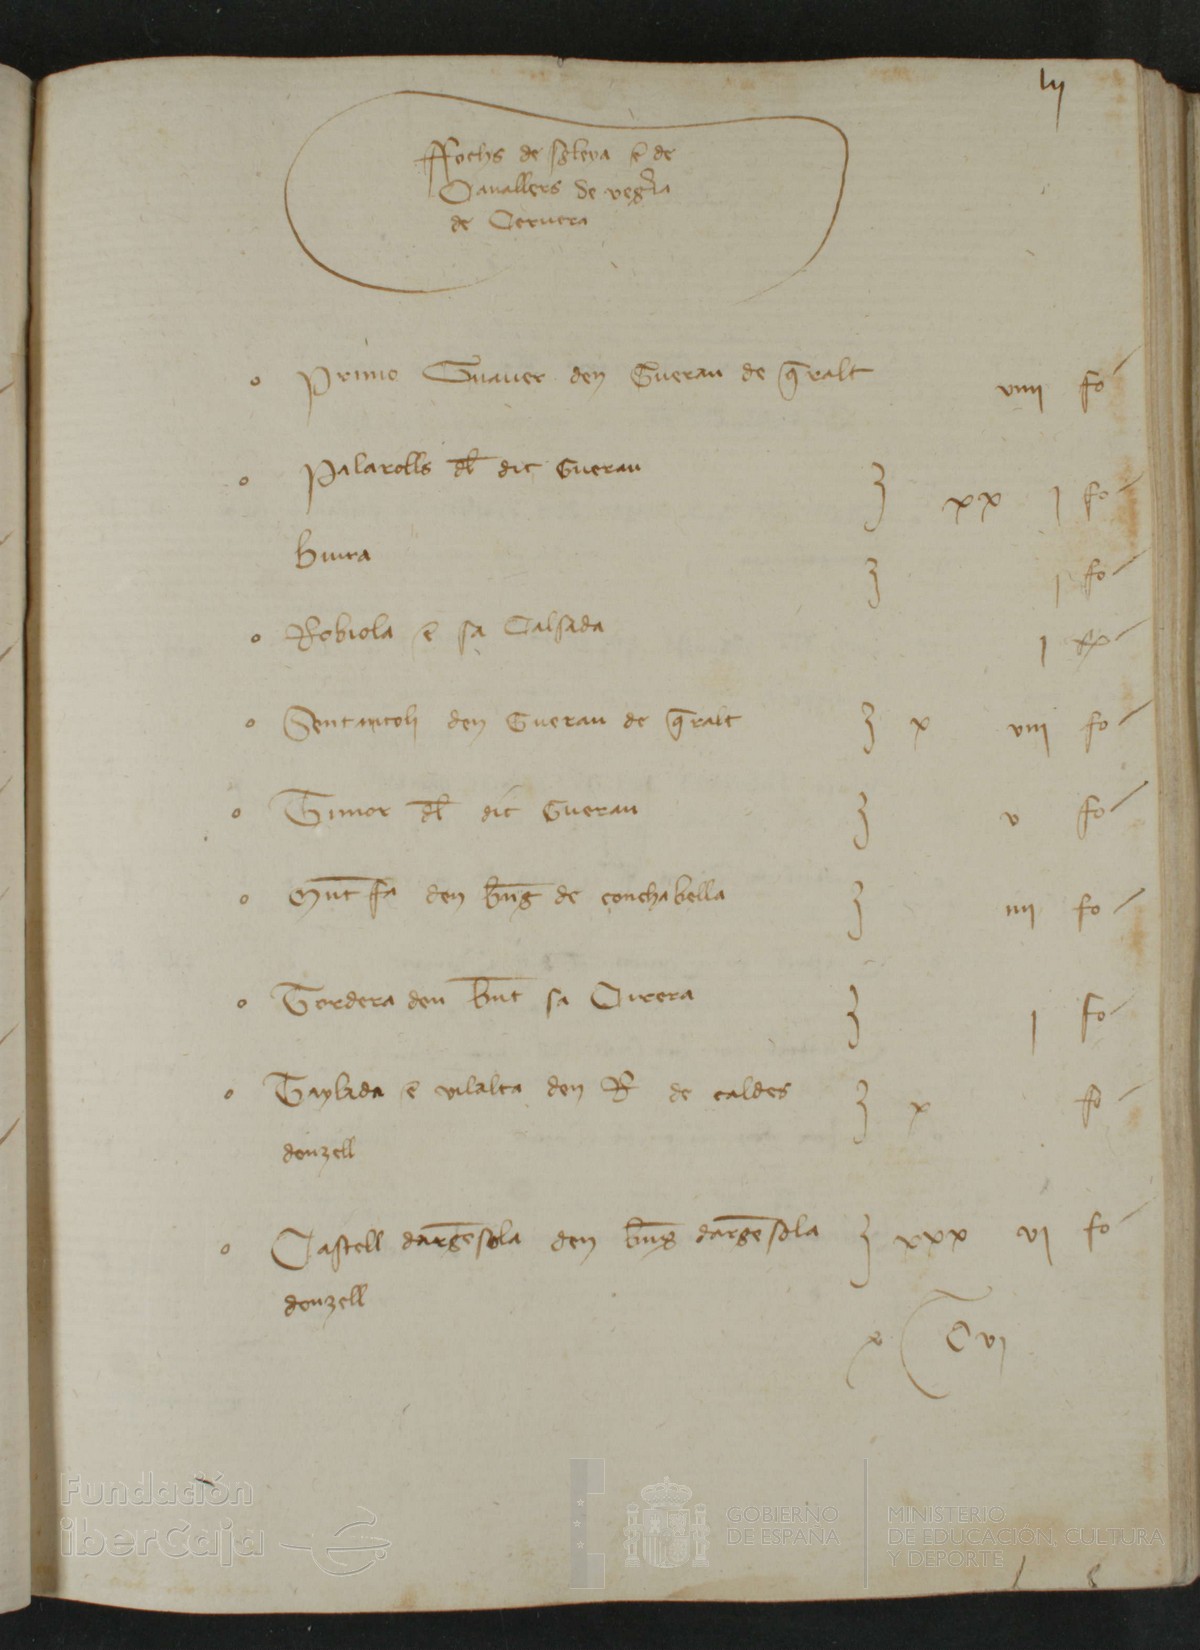 lij
Ffochs de sgleya e de
Cavallers de vegria
de Cervera
Primo Guaver den Guerau de qralt viiij fo
Palarolls dl dit Guerau xx j fo
Biura j fo
Robiola e sa Calsada j
Sentantoli den Guerau de qralt x viij fo
Timor dl dit Guerau v fo
Muntfa den bng de conchabella iiij fo
Tordera den bnt sa Cirera j fo
Taylada e vilalta den R de caldes x fo
donzell
Castell dargesola den bng dargesola xxx vj fo
donzell
C vj
Fundación
iberCaja
GOBIERNO
DE ESPAÑA
MINISTERIO
DE EDUCACIÓN, CULTURA
Y DEPORTE